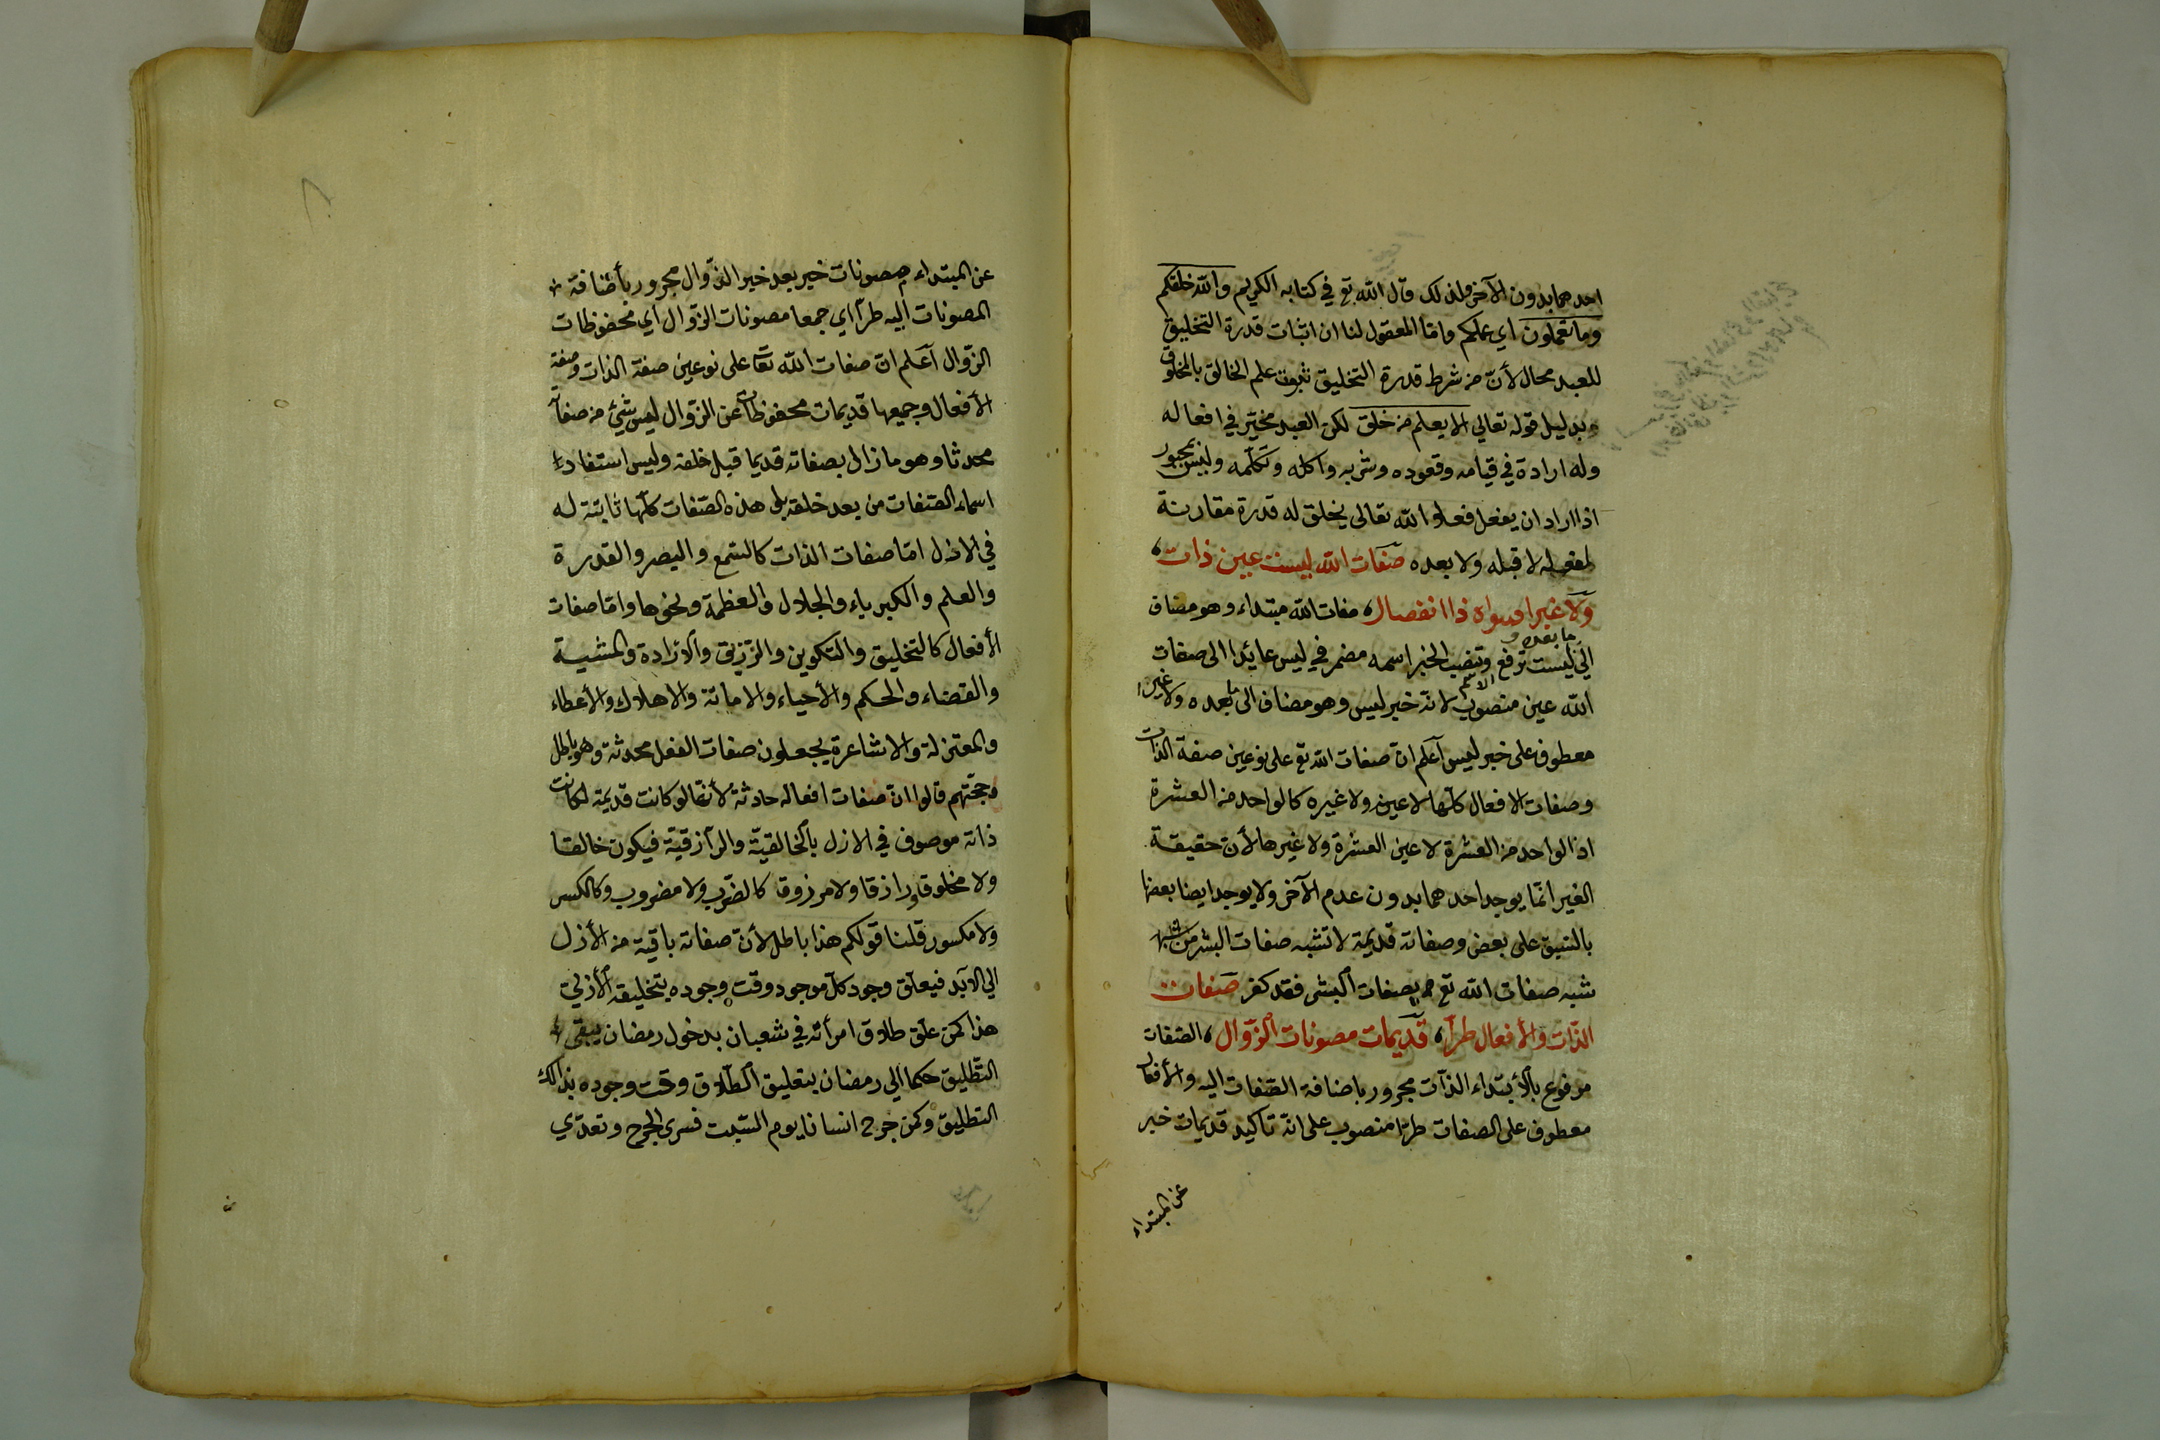 احدهما بدون الآخر ولذلك قال الله تع في كتابه الكريم والله خلقكم
وما تعملون اي عملكم وامّا المعقول لنا ان اثبات قدرة التخليق
للعبد محال لأنّ من شرط قدرة التخليق ثبوت علم الخالق بالمخلوق
وبدليل قوله تعالى الا يعلم من خلق لكن العبد مختير في افعاله
وله ارادة في قيامه وقعوده وشربه واكله وتكلّمه وليس بمجبور
اذا اراد ان يفعل فعلا والله تعالى يخلق له قدرة مقارنة
لفعله لا قبله ولا بعده صفات الله ليست عين ذات،
ولا غيرا سواه ذا انفصال، صفات الله مبتداء وهو مضاف
الى ما بعده و ليست ترفع الاسم وتنصب الخبر اسمه مضمر في ليس عايدا الى صفات
الله عين منصوب لانّه خبر ليس وهو مضاف الى ما بعده ولا غيرا
معطوف على خبر ليس اعلم ان صفات الله تع على نوعين صفة الذات
وصفات الافعال كلّها لا عين ولا غيره كالواحد من العشرة
اذ الواحد من العشرة لا عين العشرة ولا غيرها لأن حقيقة
الغير انّما يوجد احدهما بدون عدم الآخر ولا يوجد ايضا بعضها
على بعض وصفاته قديمة لا تشبه صفات البشر من
شبه صفات الله تع بصفات البشر فقد كفر صفات
الذّات والأفعال طرّا، قديمات مصونات الزّوال، الصّفات
مرفوع بالأبتداء الذّات مجرور باضافة الصّفات اليه والأفعال
معطوف على الصفات طرّا منصوب على انّه تأكيد قديمات خبر
عن المبتداء
عن المبتداء مصونات خبر بعد خبر الزّوال مجرور بأضافة
المصونات اليه طرّا اي جمعا مصونات الزّوال اي محفوظات
الزّوال اعلم انّ صفات الله تعا على نوعين صفة الذات وصفة
الأفعال وجميعها قديمات محفوظات عن الزّوال ليس شيئ من صفاته
محدثا وهو ما زال بصفاته قديما قبل خلقه وليس استفاد
اسماء الصّفات من بعد خلقه بل هذه الصّفات كلّها ثابتة له
في الازل امّا صفات الذات كالسّمع والبصر والقدرة
والعلم والكبرياء والجلال والعظمة ونحوها وامّا صفات
الأفعال كالتخليق والتكوين والتّرزيق والأرادة والمشيّة
والقضاء والحكم والأحياء والاماتة والاهلاك والأعطاء
والمعتزلة والاشاعرة يجعلون صفات الفعل محدثة وهو باطل
وحجّتهم قالوا ان صفات افعاله حادثة لأنّها لو كانت قديمة لكانت
ذاته موصوف في الازل بالخالقيّة والرّازقيّة فيكون خالقا
ولا مخلوق ورازقا ولا مرزوق كالضّرب ولا مضروب وكالكسر
ولا مكسور قلنا قولكم هذا باطل لأنّ صفاته باقية من الأزل
الى الأبد فيعلّق وجود كلّ موجود وقت وجوده بتخليقه الأزليّ
هذا كمن علّق طلاق امرأته في شعبان بدخول رمضان يبقى
التّطليق حكما الى رمضان بتعليق الطّلاق وقت وجوده بذالك
التطليق وكمن جرح انسانا يوم السّبت فسرى الجرح وتعدّي